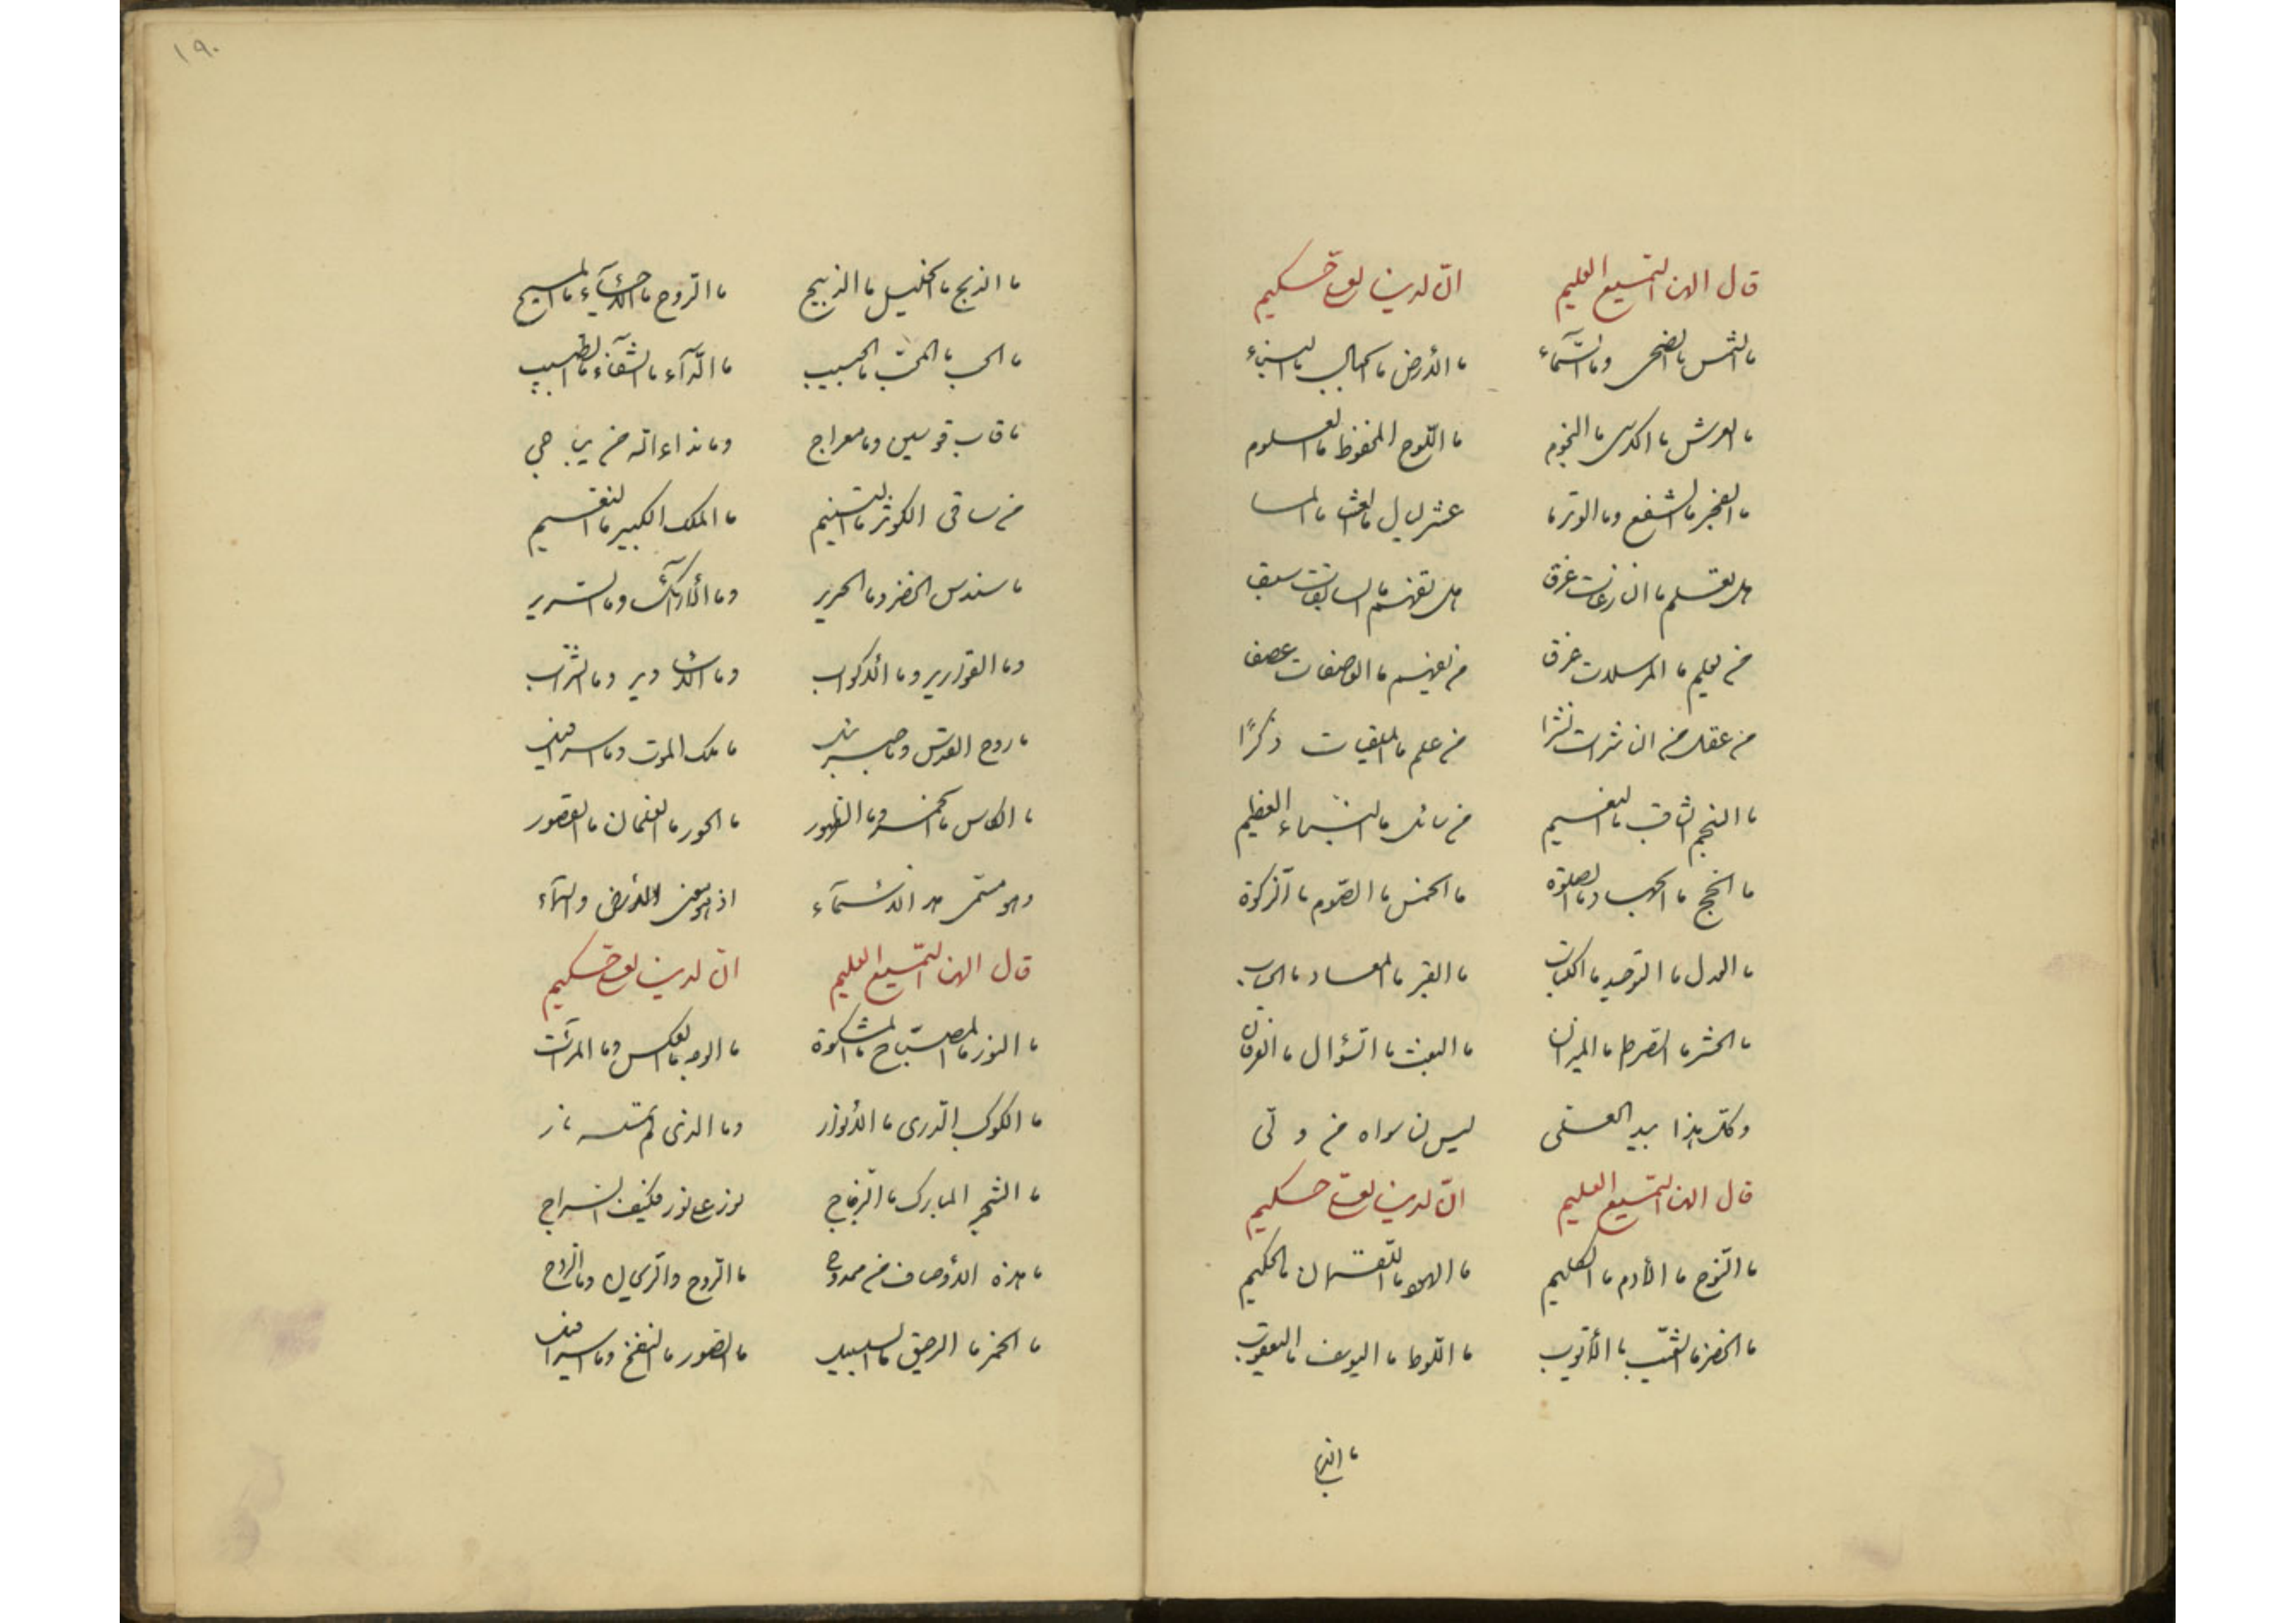 قال الله السمیع العلیم انّ لدینا لعلیّ حکیم
ما الشمس ما الضحی وما السّمآء ما الأرض ما الجبال ما البناء
ما العرش ما الکرسی ما النجوم ما اللّوح المحفوظ ما العلوم
ما الفجر ما الشفع وما الوتر ما عشر لیال ما العشا ما المسا
هل تعلم ما النازعات غرق هل تفهم ما السابقات سبق
من یعلم ما المرسلات عرف من یفهم ما العاصفات عصف
من عقل من الناشرات نشرا من علم ما الملقیات ذکرًا
ما النجم الثاقب ما النعیم من سائل ما النباء العظیم
ما الحج ما الجهاد وما الصلوة ما الخمس ما الصّوم ما الزکوة
ما العدل ما التوحید ما الکتاب ما القبر ما المعاد ما الحساب
ما الحشر ما الصّراط ما المیزان ما البعث ما السّؤال ما الفرقان
وکلّ هذا بید العلی لیس لنا سواه من ولی
قال الله السمیع العلیم انّ لدینا لعلیّ حکیم
ما النّوح ما الآدم ما الکلیم ما الهود ما اللقمان ما الحکیم
ما الخضر ما الشّیب ما الأیّوب ما اللّوط ما الیوسف ما الیعقوب
ما الذبح
۱۹۰
ما الذبح ما الخلیل ما الذبیح ما الرّوح ما الأحیآء ما المسیح
ما الحب ما المحبّ ما الحبیب ما الدّآء ما الشّفآء ما الطبیب
ما قاب قوسین وما معراج وما نداء الله من یناجی
من ساقی الکوثر ما التسنیم ما الملک الکبیر ما النعیم
ما سندس الخضر وما الحریر وما الأرآئک وما السّریر
وما القواریر وما الأکواب وما وما الشّراب
ما روح القدس وما جبرئیل ما ملک الموت وما اسرافیل
ما الکاس ما الخمر وما الطهور ما الحور ما الغلمان ما القصور
وهو الأسمآء اذ هو الأرض والسمآء
قال الله السمیع العلیم انّ لدینا لعلیّ حکیم
ما النور ما المصباح ما المشکوة ما الوجه ما العکس وما المرآت
ما الکوکب الدّری ما الأنوار وما الذی لم تمسسه نار
ما الشجر المبارک ما الزّجاج نور علی نور فکیف السراج
ما هذه الأوصاف من ممدوح ما الرّوح والرّیحان وما الرّوح
ما الخمر ما الرحیق ما السلسبیل ما الصّور ما النفخ وما اسرافیل